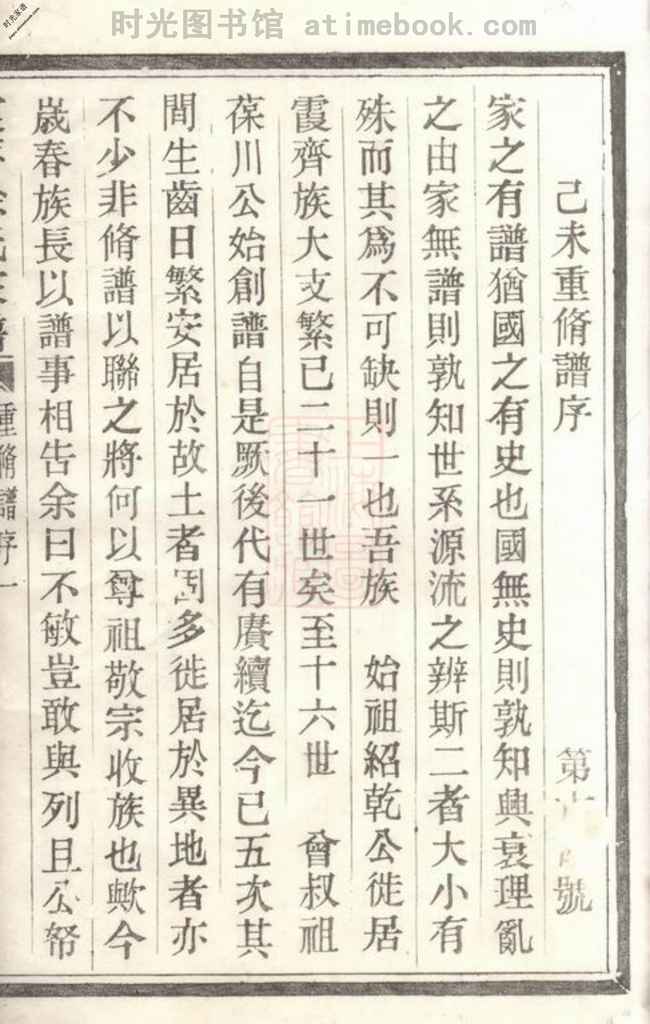 时光图书馆 atimebook.com
时光家谱
己未重脩譜序 第 號
家之有譜猶國之有史也國無史則孰知興衰理亂
之由家無譜則孰知世系源流之辨斯二者大小有
殊而其爲不可缺則一也吾族 始祖紹乾公徙居
霞齊族大支繁已二十一世矣至十六世 曾叔祖
葆川公始創譜自是厥後代有賡續迄今已五次其
間生齒日繁安居於故土者固多徙居於異地者亦
不少非脩譜以聯之將何以尊祖敬宗收族也歟今
歲春族長以譜事相告余曰不敏豈敢與列且公帑
重脩譜序一